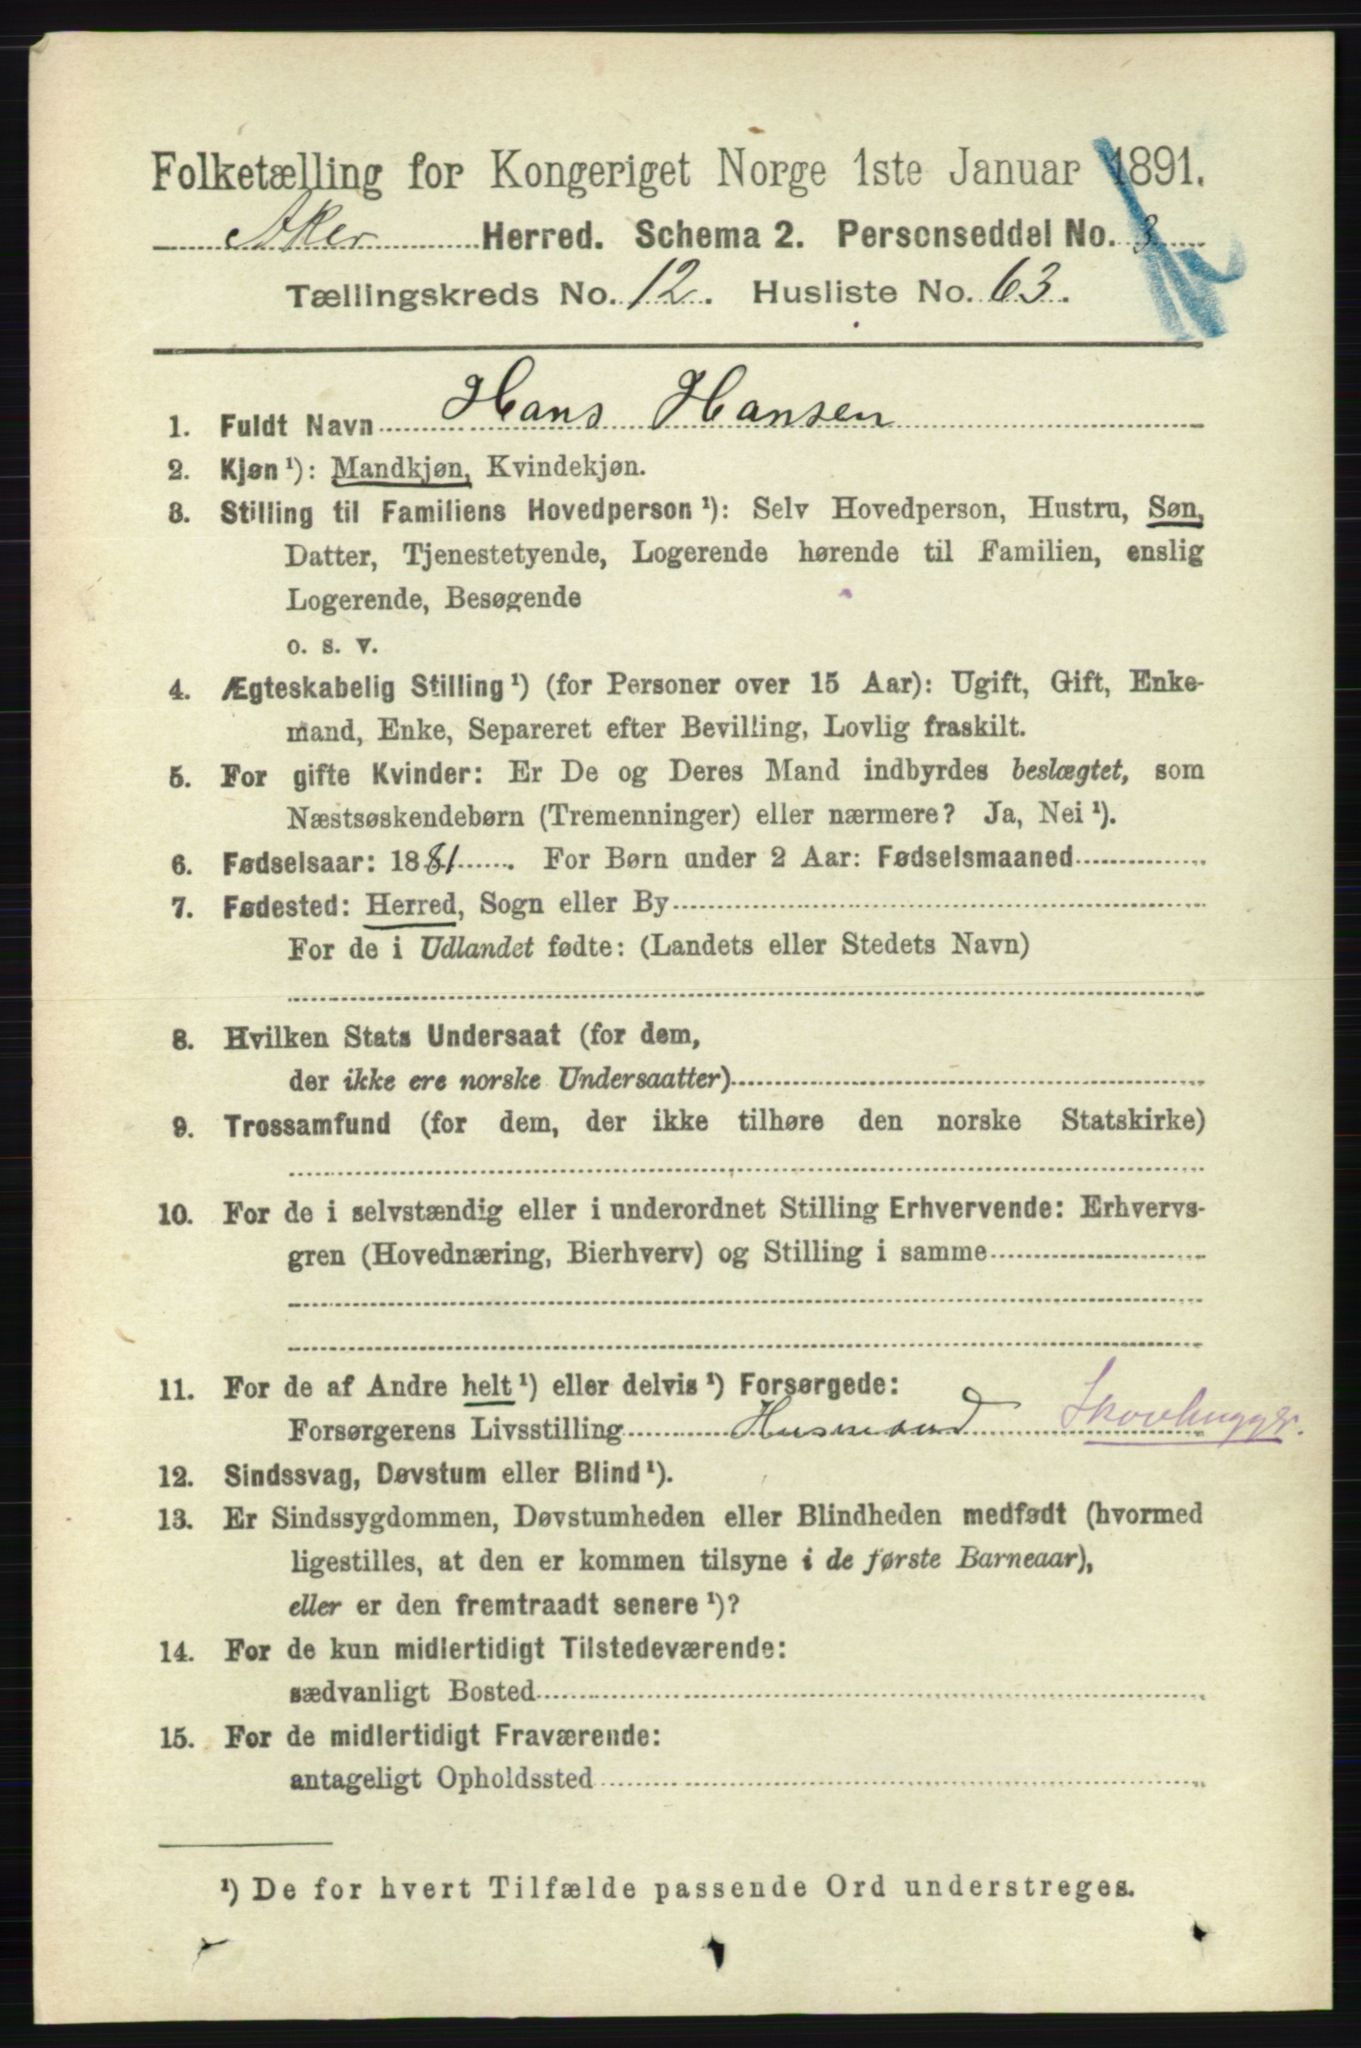 Folketælling for Kongeriget Norge 1ste Januar 1891.
Aker Herred. Schema 2. Personseddel No. 3
Tællingskreds No. 12. Husliste No. 63.
1. Fuldt Navn Hans Hansen
2. Kjøn ¹): Mandkjøn, Kvindekjøn.
3. Stilling til Familiens Hovedperson ¹): Selv Hovedperson, Hustru, Søn,
Datter, Tjenestetyende, Logerende hørende til Familien, enslig
Logerende, Besøgende
o. s. v.
4. Ægteskabelig Stilling ¹) (for Personer over 15 Aar): Ugift, Gift, Enke-
mand, Enke, Separeret efter Bevilling, Lovlig fraskilt.
5. For gifte Kvinder: Er De og Deres Mand indbyrdes beslægtet, som
Næstsøskendebørn (Tremenninger) eller nærmere? Ja, Nei ¹).
6. Fødselsaar: 1881. For Børn under 2 Aar: Fødselsmaaned
7. Fødested: Herred, Sogn eller By
For de i Udlandet fødte: (Landets eller Stedets Navn)
8. Hvilken Stats Undersaat (for dem,
der ikke ere norske Undersaatter)
9. Trossamfund (for dem, der ikke tilhøre den norske Statskirke)
10. For de i selvstændig eller i underordnet Stilling Erhvervende: Erhvervs-
gren (Hovednæring, Bierhverv) og Stilling i samme
11. For de af Andre helt ¹) eller delvis ¹) Forsørgede:
Forsørgerens Livsstilling Husmand Skovhugger.
12. Sindssvag, Døvstum eller Blind ¹).
13. Er Sindssygdommen, Døvstumheden eller Blindheden medfødt (hvormed
ligestilles, at den er kommen tilsyne i de første Barneaar),
eller er den fremtraadt senere ¹)?
14. For de kun midlertidigt Tilstedeværende:
sædvanligt Bosted
15. For de midlertidigt Fraværende:
antageligt Opholdssted
¹) De for hvert Tilfælde passende Ord understreges.